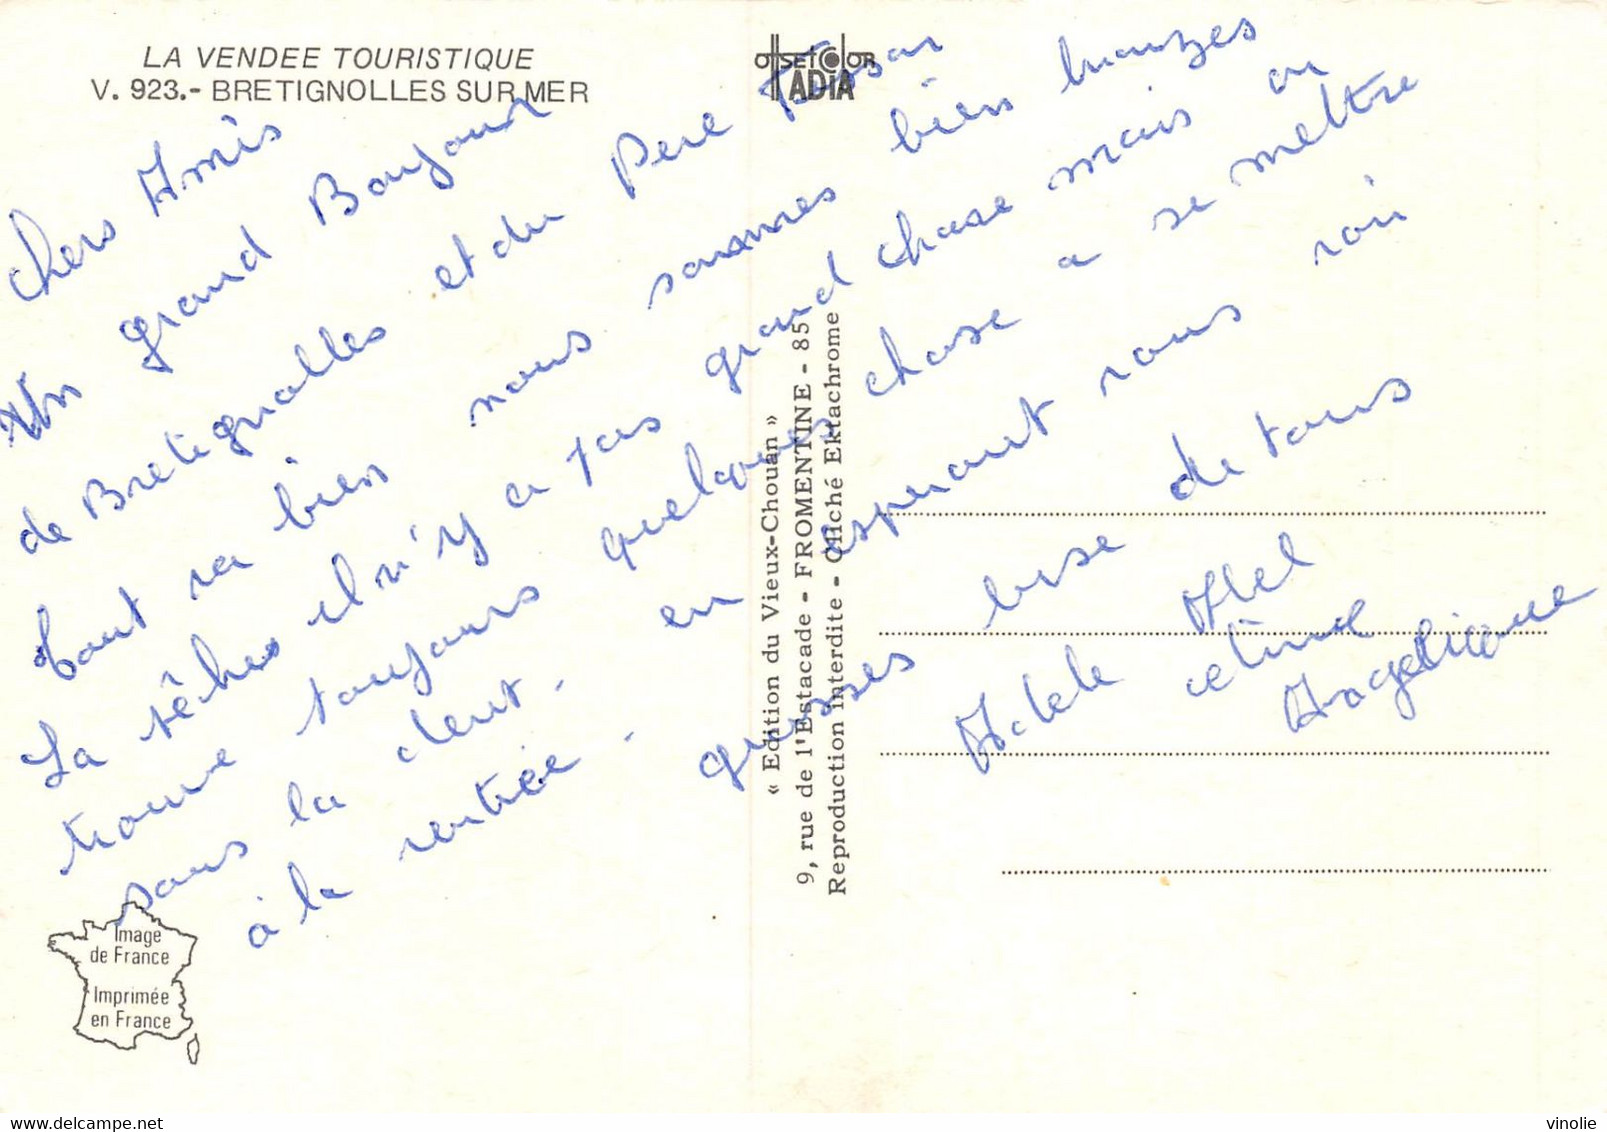 LA VENDEE TOURISTIQUE
V. 923.- BRETIGNOLLES SUR MER
offset color
ADIA
chers Amis
Un grand Bonjour
de Bretignolles et du Père Fossar
tout va bien nous sommes bien bronzes
La pêche il n'y a pas grand chose mais on
trouve toujours quelques chose a se mettre
sous la dent. en esperant vous voir
à la rentrée. grosses bise de tous
Abel
Adele celine
Angelique
« Edition du Vieux-Chouan »
9, rue de l'Estacade - FROMENTINE - 85
Reproduction interdite - Cliché Ektachrome
Image
de France
Imprimée
en France
Delcampe.net
vinolie